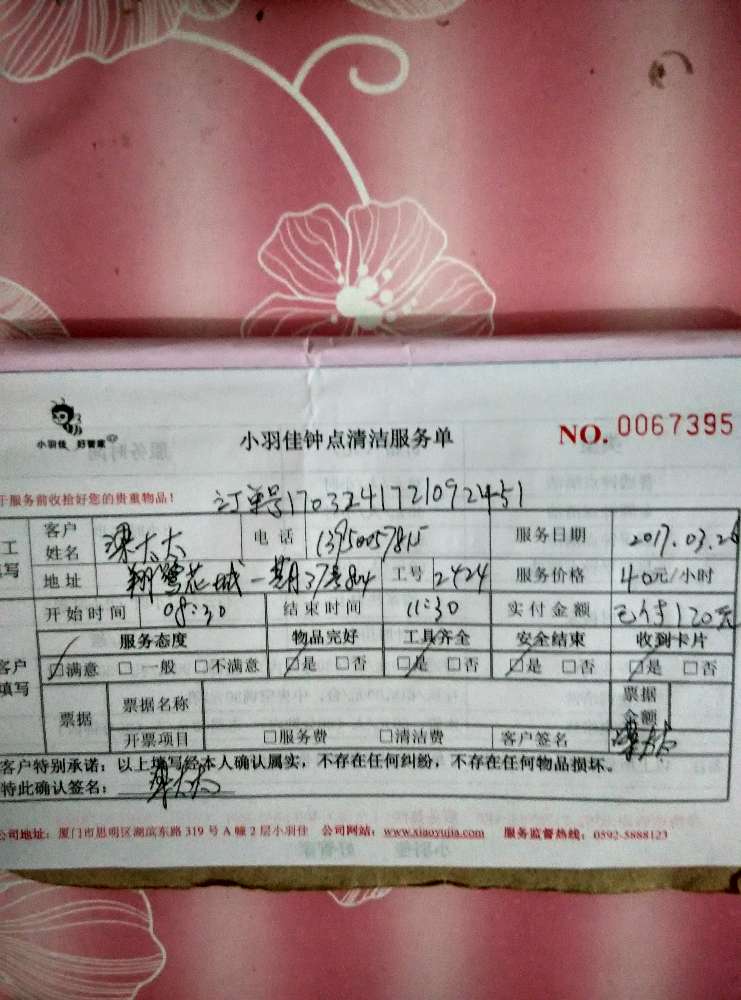 小羽佳 好管家
小羽佳钟点清洁服务单
NO. 0067395
于服务前收拾好您的贵重物品!
订单号1703241721092451
工 客户姓名 梁太太 电话 13950057815 服务日期 2017.03.26
写 地址 翔鹭花城一期37 804 工号 2424 服务价格 40元/小时
开始时间 08:30 结束时间 11:30 实付金额 已付120元
服务态度 物品完好 工具齐全 安全结束 收到卡片
客户填写 □满意 □一般 □不满意 □是 □否 □是 □否 □是 □否 □是 □否
票据 票据名称 票据金额
开票项目 □服务费 □清洁费 客户签名 梁太太
客户特别承诺:以上填写经本人确认属实,不存在任何纠纷,不存在任何物品损坏。
特此确认签名: 梁太太
公司地址:厦门市思明区湖滨东路 319 号 A 幢 2 层小羽佳 公司网站:www.xiaoyujia.com 服务监督热线:0592-5888123